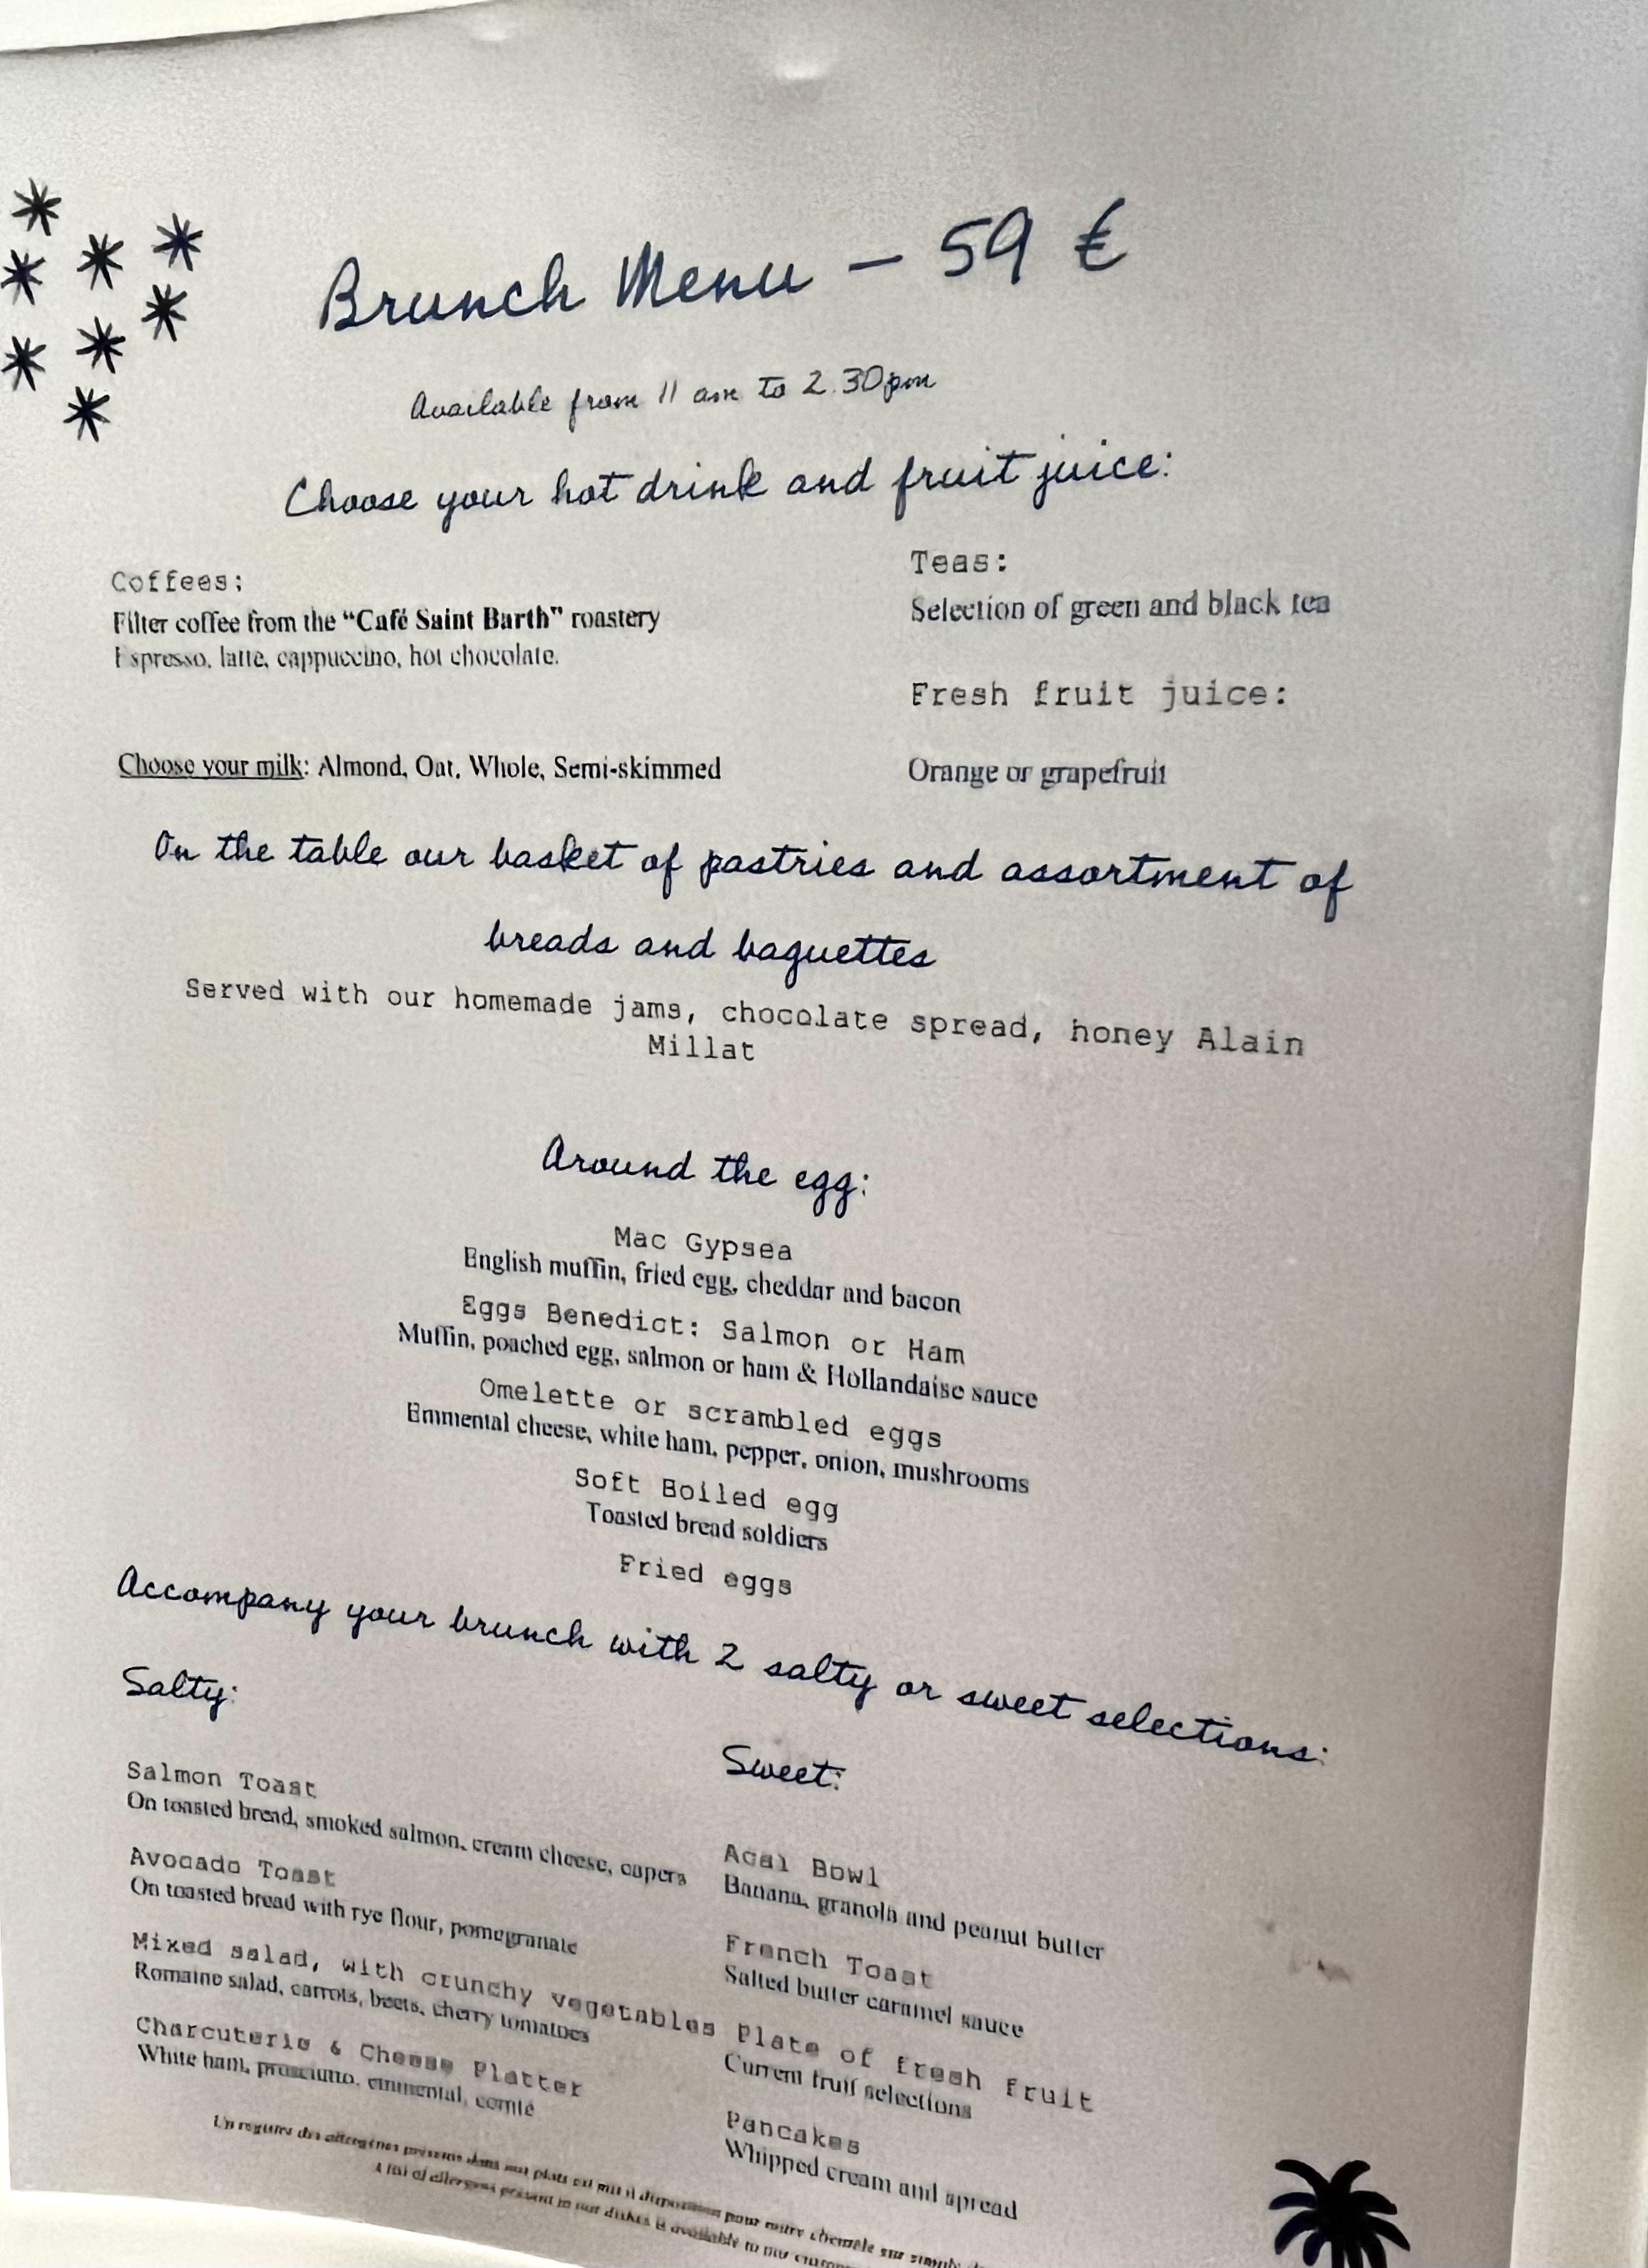 Brunch Menu – 59 €
Available from 11 am to 2.30pm
Choose your hot drink and fruit juice:
Coffees:
Filter coffee from the “Café Saint Barth” roastery
Espresso, latte, cappuccino, hot chocolate.
Choose your milk: Almond, Oat, Whole, Semi-skimmed
Teas:
Selection of green and black tea
Fresh fruit juice:
Orange or grapefruit
On the table our basket of pastries and assortment of
breads and baguettes
Served with our homemade jams, chocolate spread, honey Alain
Millat
Around the egg:
Mac Gypsea
English muffin, fried egg, cheddar and bacon
Eggs Benedict: Salmon or Ham
Muffin, poached egg, salmon or ham & Hollandaise sauce
Omelette or scrambled eggs
Emmental cheese, white ham, pepper, onion, mushrooms
Soft Boiled egg
Toasted bread soldiers
Fried eggs
Accompany your brunch with 2 salty or sweet selections:
Salty:
Salmon Toast
On toasted bread, smoked salmon, cream cheese, capers
Avocado Toast
On toasted bread with rye flour, pomegranate
Mixed salad, with crunchy vegetables
Romaine salad, carrots, beets, cherry tomatoes
Charcuterie & Cheese Platter
White ham, prosciutto, emmental, comté
Sweet:
Acai Bowl
Banana, granola and peanut butter
French Toast
Salted butter caramel sauce
Plate of fresh fruit
Current fruit selections
Pancakes
Whipped cream and spread
Un registre des allergènes présents dans nos plats est mis à disposition pour notre clientèle sur simple
A list of allergens present in our dishes is available to our